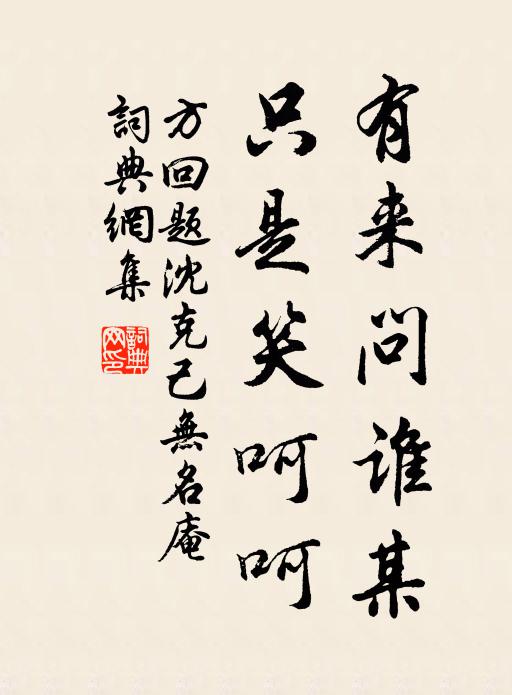 有来问谁某
只是笑呵呵
方回题沈克己無名庵
詞典網集
詞典網印